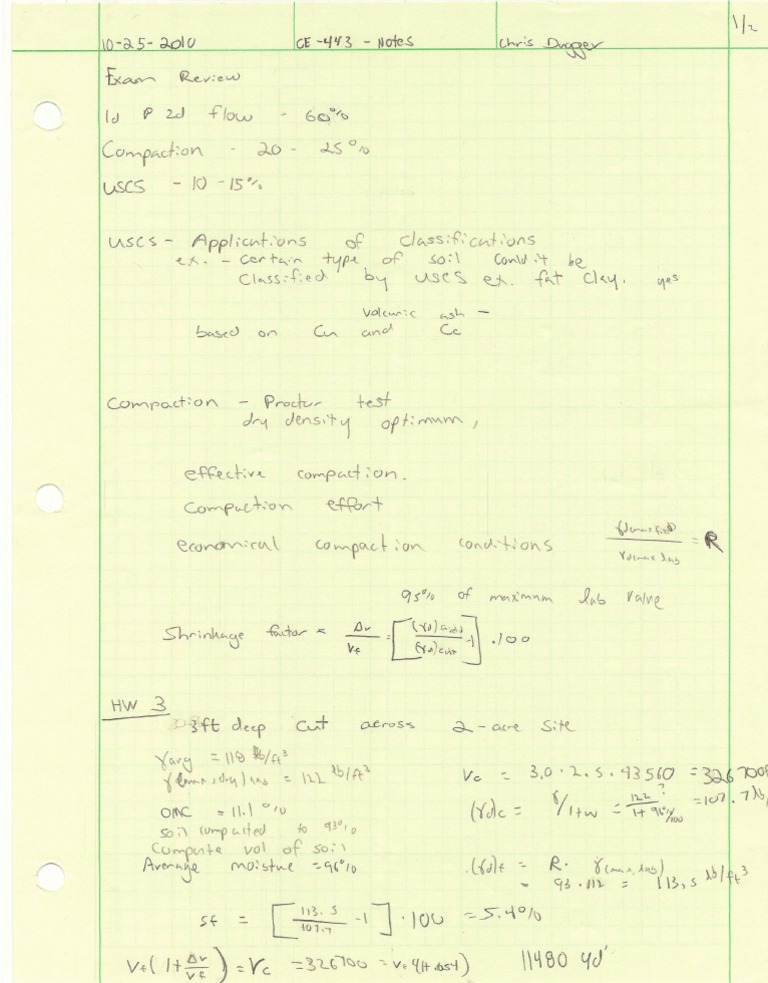 1/2
10-25-2010 CE-443 - Notes Chris Dugger
Exam Review
1d P 2d flow - 60%
Compaction - 20 - 25%
USCS - 10 - 15%
USCS - Applications of classifications
ex. - certain type of soil could it be
classified by USCS ex. fat clay. yes
volcanic ash -
based on Cu and Cc
Compaction - Proctur test
dry density optimum,
effective compaction.
Compaction effort
economical compaction conditions
= R
95% of maximum lab value
Shrinkage factor = Δv/Vf = [(γd)/(γd) -1] .100
HW 3
3ft deep cut across 2-acre site
γavg = 118 lb/ft³
= 122 lb/ft³
Vc = 3.0 . 2.5 . 43560 = 326700
OMC = 11.1%
(γd)c = γ/1+w = 122?/1+9.6%/100 = 107.7 lb/
soil compacted to 93%
Compute vol of soil
Average moistue = 96%
(γd)f = R. γ(max, lab)
= 93 . 112 = 113,5 lb/ft³
sf = [113.5/107.7 -1] . 100 = 5.4%
Vf(1+Δv/vf) = Vc = 326700 = Vf (1+.054) 11480 yd³